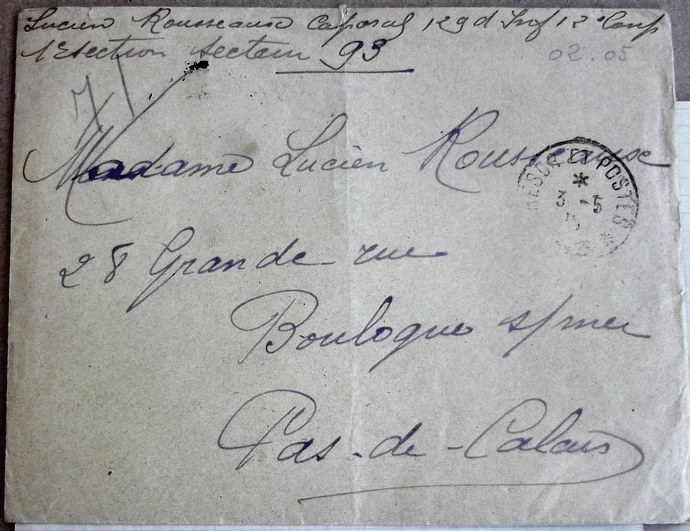 Lucien Rousseaux Caporal 129d Inf 12e Comp
1e section secteur 93
02.05
Madame Lucien Rousseaux
TRESOR ET POSTES
*
3 - 5
93
28 Grande rue
Boulogne s/mer
Pas-de-Calais